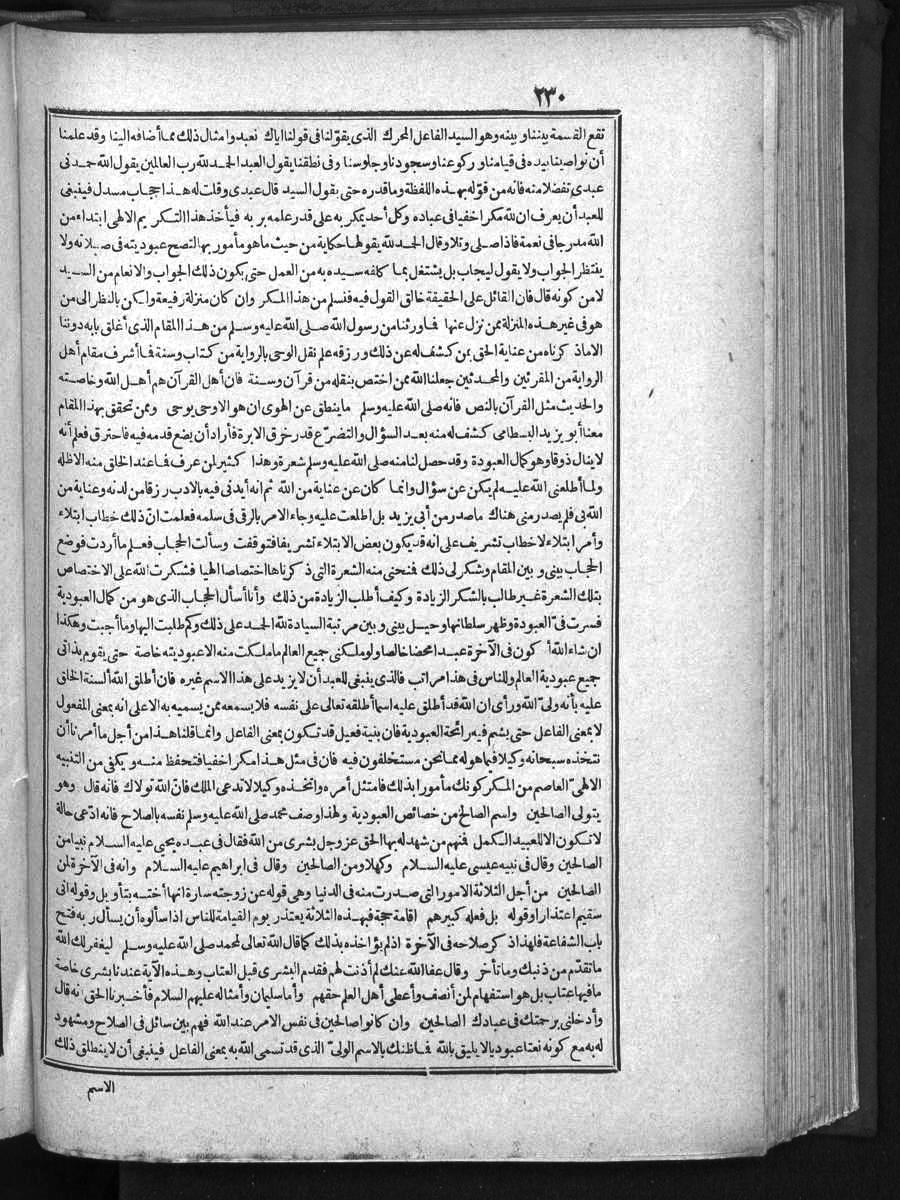 ٢٣٠
تقع القسمة بيننا وبينه وهو السيد الفاعل المحرك الذى يقوّلنا فى قولنا اياك نعبد وأمثال ذلك مما أضافه الينا وقد علمنا
أن نواصينا بيده فى قيامنا وركوعنا وسجودنا وجلوسنا وفى نطقنا يقول العبد الحمد لله رب العالمين يقول الله حمدنى
عبدى تفضلا منه فانه من قوّله بهذه اللفظة وما قدره حتى يقول السيد قال عبدى وقلت له هذا حجاب مسدل فينبغى
للعبد أن يعرف ان لله مكرا خفيا فى عباده وكل أحد يمكر به على قدر علمه بربه فيأخذ هذا التكريم الالهى ابتداء من
الله مدرجا فى نعمة فاذا صلى وتلا وقال الحمد لله يقولها حكاية من حيث ما هو مأمور بها لتصح عبوديته فى صلاته ولا
ينتظر الجواب ولا يقول ليجاب بل يشتغل بما كلفه سيده به من العمل حتى يكون ذلك الجواب والانعام من السيد
لا من كونه قال فان القائل على الحقيقة خالق القول فيه فنسلم من هذا المكر وان كان منزلة رفيعة ولكن بالنظر الى من
هو فى غير هذه المنزلة ممن نزل عنها فاورثنا من رسول الله صلى الله عليه وسلم من هذا المقام الذى أغلق بابه دوننا
الا ما ذكرناه من عناية الحق بمن كشف له عن ذلك ورزقه علم نقل الوحى بالرواية من كتاب وسنة فما أشرف مقام أهل
الرواية من المقرئين والمحدثين جعلنا الله ممن اختص بنقله من قرآن وسنة فان أهل القرآن هم أهل الله وخاصته
والحديث مثل القرآن بالنص فانه صلى الله عليه وسلم ما ينطق عن الهوى ان هو الا وحى يوحى وممن تحقق بهذا المقام
معنا أبو يزيد البسطامى كشف له منه بعد السؤال والتضرّع قدر خرق الابرة فأراد أن يضع قدمه فيه فاحترق فعلم أنه
لا ينال ذوقا وهو كمال العبودة وقد حصل لنا منه صلى الله عليه وسلم شعرة وهذا كثير لمن عرف فما عند الخلق منه الا ظله
ولما أطلعنى الله عليه لم يكن عن سؤال وانما كان عن عناية من الله ثم انه أيدنى فيه بالادب رزقا من لدنه وعناية من
الله بى فلم يصدر منى هناك ما صدر من أبى يزيد بل اطلعت عليه وجاء الامر بالرقى فى سلمه فعلمت انّ ذلك خطاب ابتلاء
وأمر ابتلاء لا خطاب تشريف على انه قد يكون بعض الابتلاء تشريفا فتوقفت وسألت الحجاب فعلم ما أردت فوضع
الحجاب بينى وبين المقام وشكر لى ذلك فنحنى منه الشعرة التى ذكرناها اختصاصا الهيا فشكرت الله على الاختصاص
بتلك الشعرة غير طالب بالشكر الزيادة وكيف أطلب الزيادة من ذلك وأنا أسأل الحجاب الذى هو من كمال العبودية
فسرت فىّ العبودة وظهر سلطانها وحيل بينى وبين مرتبة السيادة لله الحمد على ذلك وكم طلبت اليها وما أجبت وهكذا
ان شاء الله أكون فى الآخرة عبدا محضا خالصا ولو ملكنى جميع العالم ما ملكت منه الا عبوديته خاصة حتى يقوم بذاتى
جميع عبودية العالم وللناس فى هذا مراتب فالذى ينبغى للعبد أن لا يزيد على هذا الاسم غيره فان أطلق الله ألسنة الخلق
عليه بأنه ولىّ الله ورأى ان الله قد أطلق عليه اسما أطلقه تعالى على نفسه فلا يسمعه ممن يسميه به الا على انه بمعنى المفعول
لا بمعنى الفاعل حتى يشم فيه رائحة العبودية فان بنية فعيل قد تكون بمعنى الفاعل وانما قلنا هذا من أجل ما أمرنا أن
نتخذه سبحانه وكيلا فيما هو له مما نحن مستخلفون فيه فان فى مثل هذا مكرا خفيا فتحفظ منه ويكفى من التنبيه
الالهىّ العاصم من المكر كونك مأمورا بذلك فامتثل أمره واتخذه وكيلا لا تدعى الملك فانّ الله تولاك فانه قال وهو
يتولى الصالحين واسم الصالح من خصائص العبودية ولهذا وصف محمد صلى الله عليه وسلم نفسه بالصلاح فانه ادّعى حالة
لا تكون الا للعبيد الكمل فنهم من شهد له بها الحق عز وجل بشرى من الله فقال فى عبده يحيى عليه السلام نبيا من
الصالحين وقال فى نبيه عيسى عليه السلام وكهلا ومن الصالحين وقال فى ابراهيم عليه السلام وانه فى الآخرة لمن
الصالحين من أجل الثلاثة الامور التى صدرت منه فى الدنيا وهى قوله عن زوجته سارة انها أخته بتأويل وقوله انى
سقيم اعتذارا وقوله بل فعله كبيرهم اقامة حجة فبهذه الثلاثة يعتذر يوم القيامة للناس اذا سألوه أن يسأل ربه فتح
باب الشفاعة فلهذا ذكر صلاحه فى الآخرة اذ لم يؤاخذه بذلك كما قال الله تعالى لمحمد صلى الله عليه وسلم ليغفر لك الله
ما تقدّم من ذنبك وما تأخر وقال عفا الله عنك لم أذنت لهم فقدم البشرى قبل العتاب وهذه الآية عندنا بشرى خاصة
ما فيها عتاب بل هو استفهام لمن أنصف وأعطى أهل العلم حقهم وأما سليمان وأمثاله عليهم السلام فأخبرنا الحق انه قال
وأدخلنى برحمتك فى عبادك الصالحين وان كانوا صالحين فى نفس الامر عند الله فهم بين سائل فى الصلاح ومشهود
له به مع كونه نعتا عبوديا لا يليق بالله فما ظنك بالاسم الولىّ الذى قد تسمى الله به بمعنى الفاعل فينبغى أن لا ينطلق ذلك
الاسم